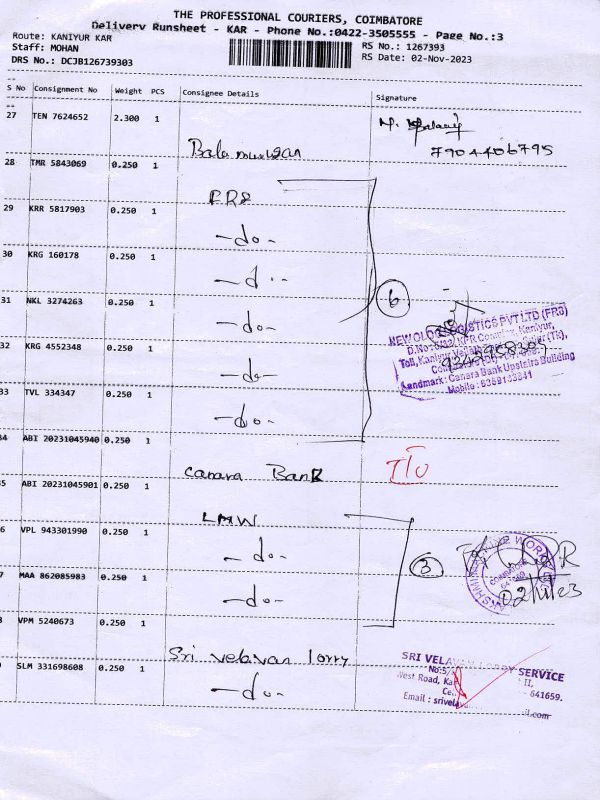 THE PROFESSIONAL COURIERS, COIMBATORE
Delivery Runsheet - KAR - Phone No.:0422-3505555 - Page No.:3
Route: KANIYUR KAR
RS No.: 1267393
Staff: MOHAN
RS Date: 02-Nov-2023
DRS No.: DCJB126739303
S No Consignment No Weight PCS Consignee Details Signature
27 TEN 7624652 2.300 1
7904406795
Balamurugan
28 TMR 5843069 0.250 1
FR8
29 KRR 5817903 0.250 1
-do-
30 KRG 160178 0.250 1
-d..
6
31 NKL 3274263 0.250 1
-do-
NEW OLOGISTICS PVT LTD (FR8)
D.No: KPR Complex, Kaniyur,
Toll, Kaniyur (Tk),
32 KRG 4552348 0.250 1
-do-
Landmark: Canara Bank Upstairs Building
Mobile:
33 TVL 334347 0.250 1
-do-
34 ABI 20231045940 0.250 1
Canara Bank
35 ABI 20231045901 0.250 1
LMW
6 VPL 943301990 0.250 1
-do-
3
COIMBATORE
7 MAA 862085983 0.250 1
-do-
02/11/23
8 VPM 5240673 0.250 1
Sri velavan lorry
SRI VELAVAN LORRY SERVICE
9 SLM 331698608 0.250 1
-do-
West Road, 641659.
Email :